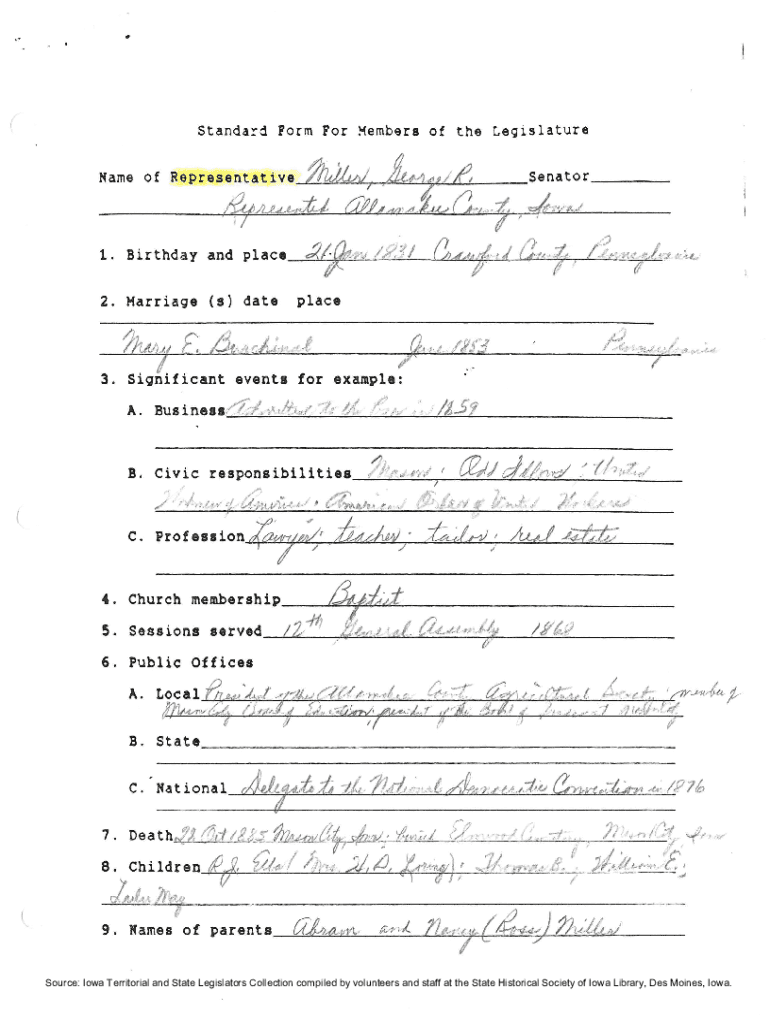 Standard Form For Members of the Legislature
Name of Representative Miller, George R. Senator
Represented Allamakee County, Iowa
1. Birthday and place 21 Jan 1831 Crawford County, Pennsylvania
2. Marriage (s) date place
Mary E. Burchinal June 1853 Pennsylvania
3. Significant events for example:
A. Business Admitted to the Bar in 1859
B. Civic responsibilities Mason; Odd Fellows; United
Workmen of America; American Order of United Workers
C. Profession Lawyer; teacher; tailor; real estate
4. Church membership Baptist
5. Sessions served 12th General Assembly 1868
6. Public Offices
A. Local President of the Allamakee County Agricultural Society; member of
Mason City Board of Education; president of the Board of
B. State
C. National Delegate to the National Democratic Convention in 1876
7. Death 28 Oct 1885 Mason City, Iowa; buried Elmwood Cemetery, Mason City, Iowa
8. Children R.J. Ella (Mrs. H.D. Loring); Thomas B.; William E.;
May
9. Names of parents Abram and Nancy (Ross) Miller
Source: Iowa Territorial and State Legislators Collection compiled by volunteers and staff at the State Historical Society of Iowa Library, Des Moines, Iowa.